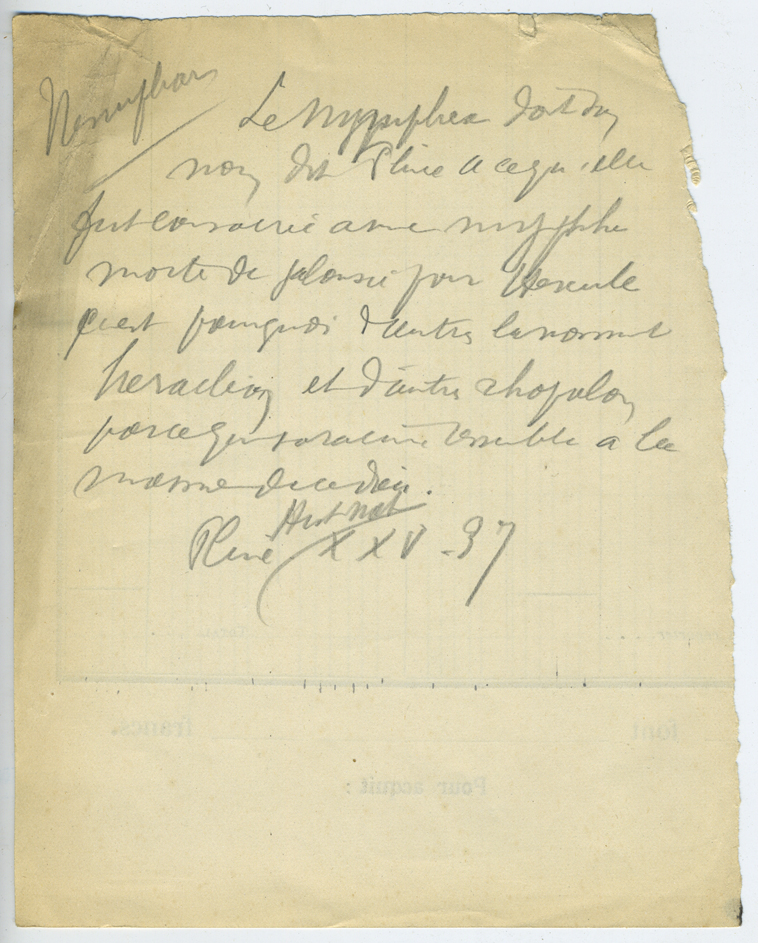 Nenuphar
Le Nymphea doit son
nom dit Pline a ce qu'elle
fut consacrée a une nymphe
morte de jalousie pour Hercule
c'est pourquoi d'autres la nomment
heraclion et d'autres rhopalon
parce que sa racine ressemble a la
massue de ce dieu.
Hist nat
Pline XXV - 37
francs.
font
Pour acquit :